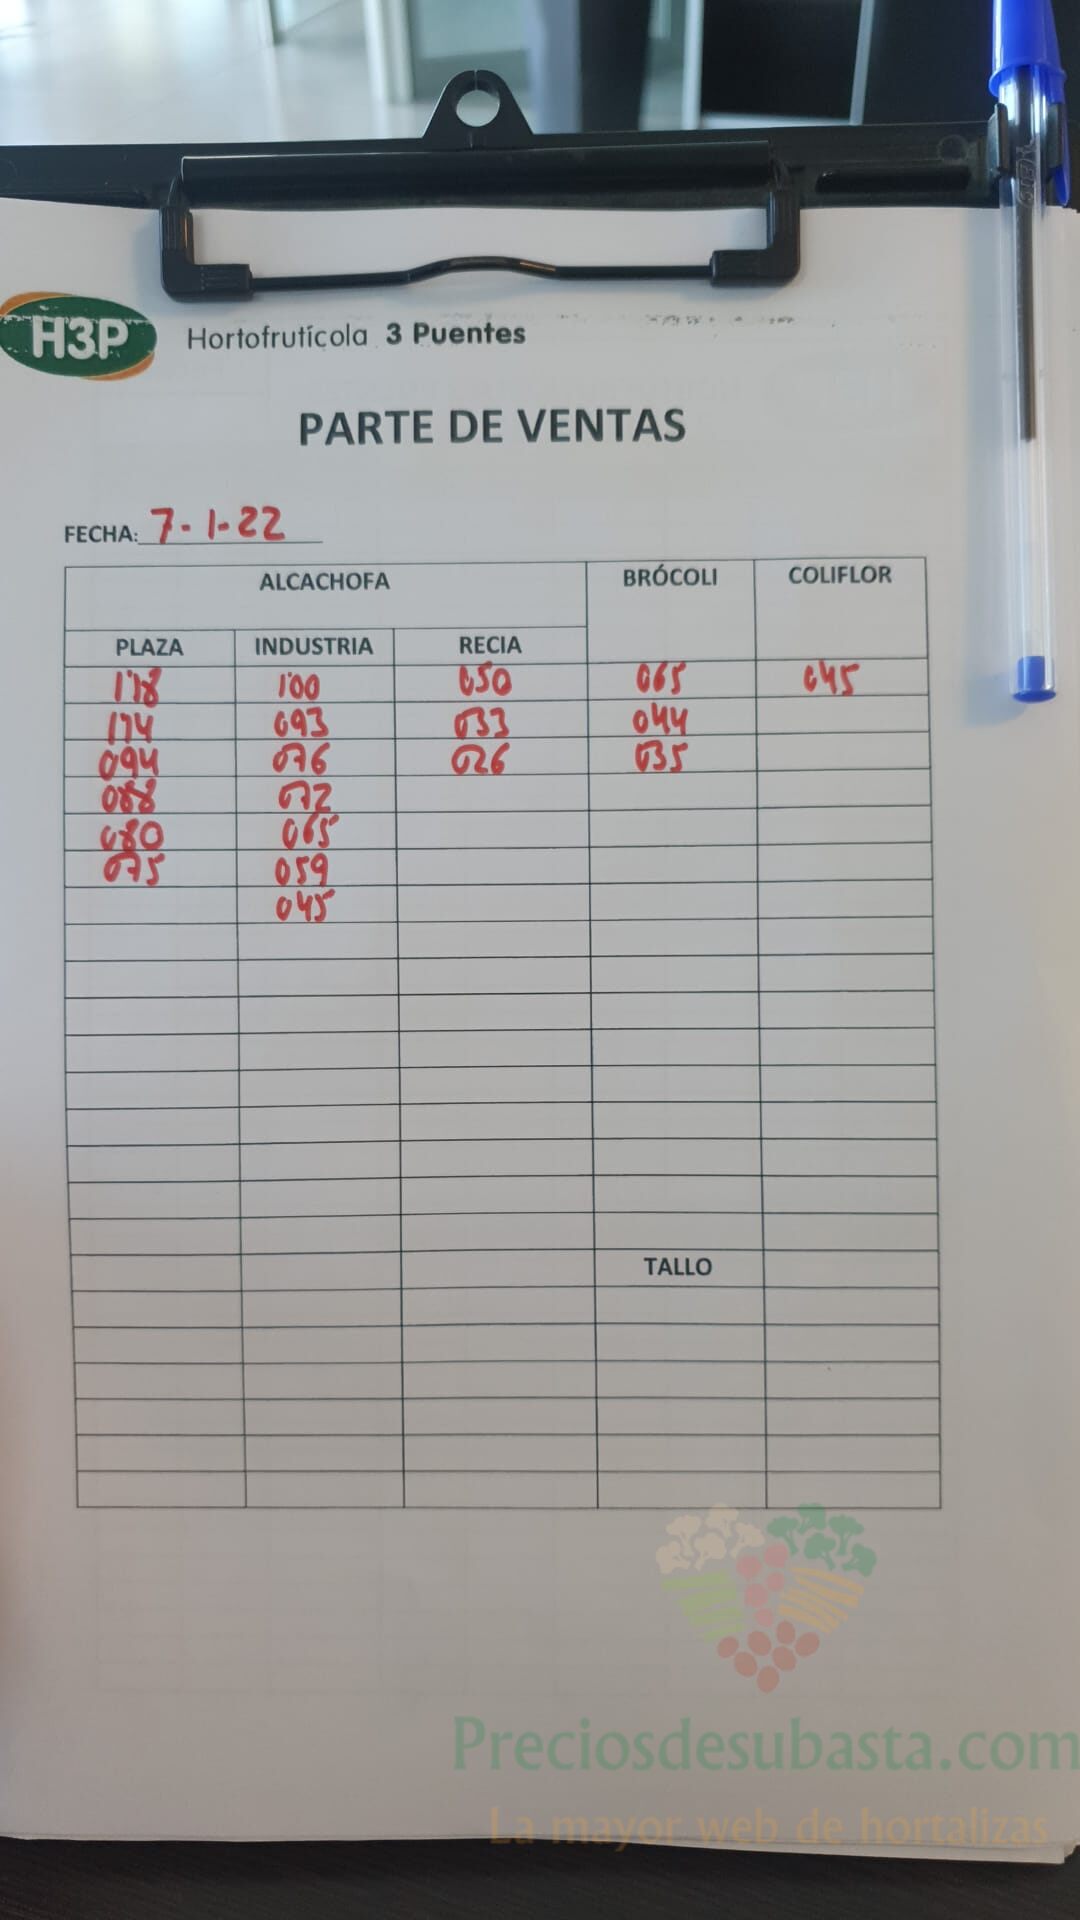 H3P Hortofrutícola 3 Puentes
PARTE DE VENTAS
FECHA: 7-1-22
ALCACHOFA BRÓCOLI COLIFLOR
PLAZA INDUSTRIA RECIA
1'18 1'00 050 065 045
114 093 033 044
094 076 026 035
088 072
080 065
075 059
045
TALLO
Preciosdesubasta.com
La mayor web de hortalizas